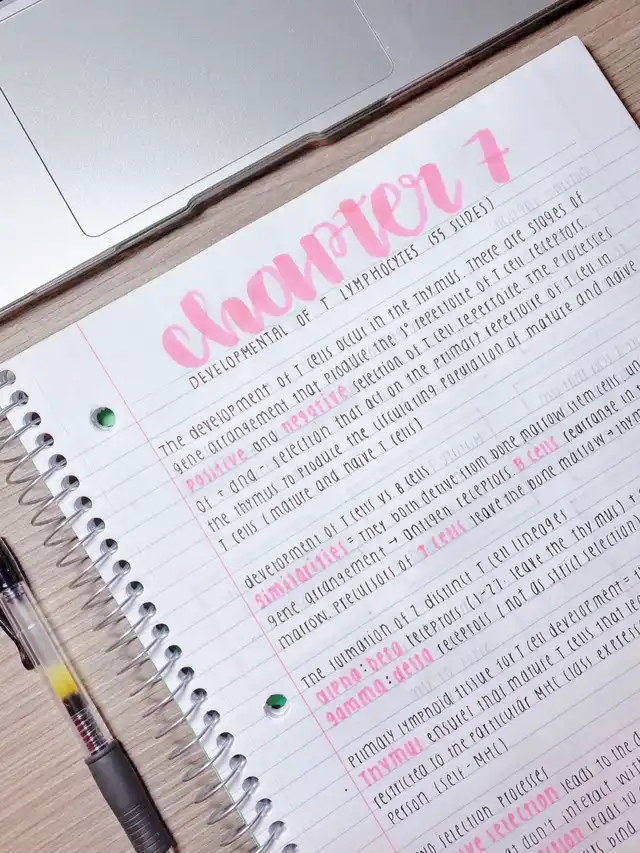 chapter 7
DEVELOPMENTAL OF T LYMPHOCYTES (55 SLIDES)
The development of T cells occur in the thymus. There are stages of
gene arrangement that produce the 1° repertoire of T cell receptors.
positive and negative selection of T cell repertoire. The processes
of + and - selection that act on the primary repertoire of T cell in
the thymus to produce the circulating population of mature and naive
T cells (mature and naive T cells)
development of T cells vs B cells
similarities = They both derive from bone marrow stem cells, un
gene arrangement → antigen receptors. B cells rearrange in
marrow, precursors of T cells leave the bone marrow → thym
The formation of 2 distinct T cell lineages
alpha:beta receptors leave the thymus)
gamma:delta receptors (not as strict selection
Primary lymphoid tissue for T cell development =
Thymus ensures that mature T cells that
restricted to the particular MHC class
person (self-MHC)
selection processes
selection leads to the
that don't interact with
leads to